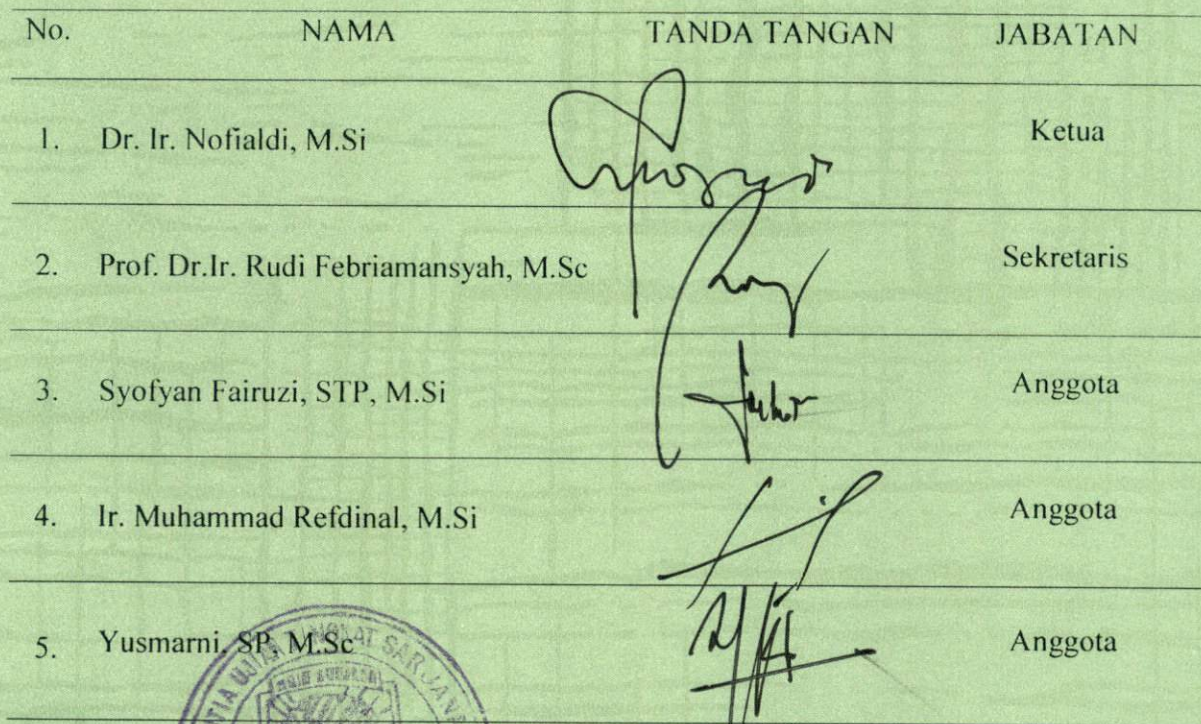 No. NAMA TANDA TANGAN JABATAN
1. Dr. Ir. Nofialdi, M.Si Ketua
2. Prof. Dr.Ir. Rudi Febriamansyah, M.Sc Sekretaris
3. Syofyan Fairuzi, STP, M.Si Anggota
4. Ir. Muhammad Refdinal, M.Si Anggota
5. Yusmarni, SP, M.Sc Anggota
UJIAN TINGKAT SARJANA